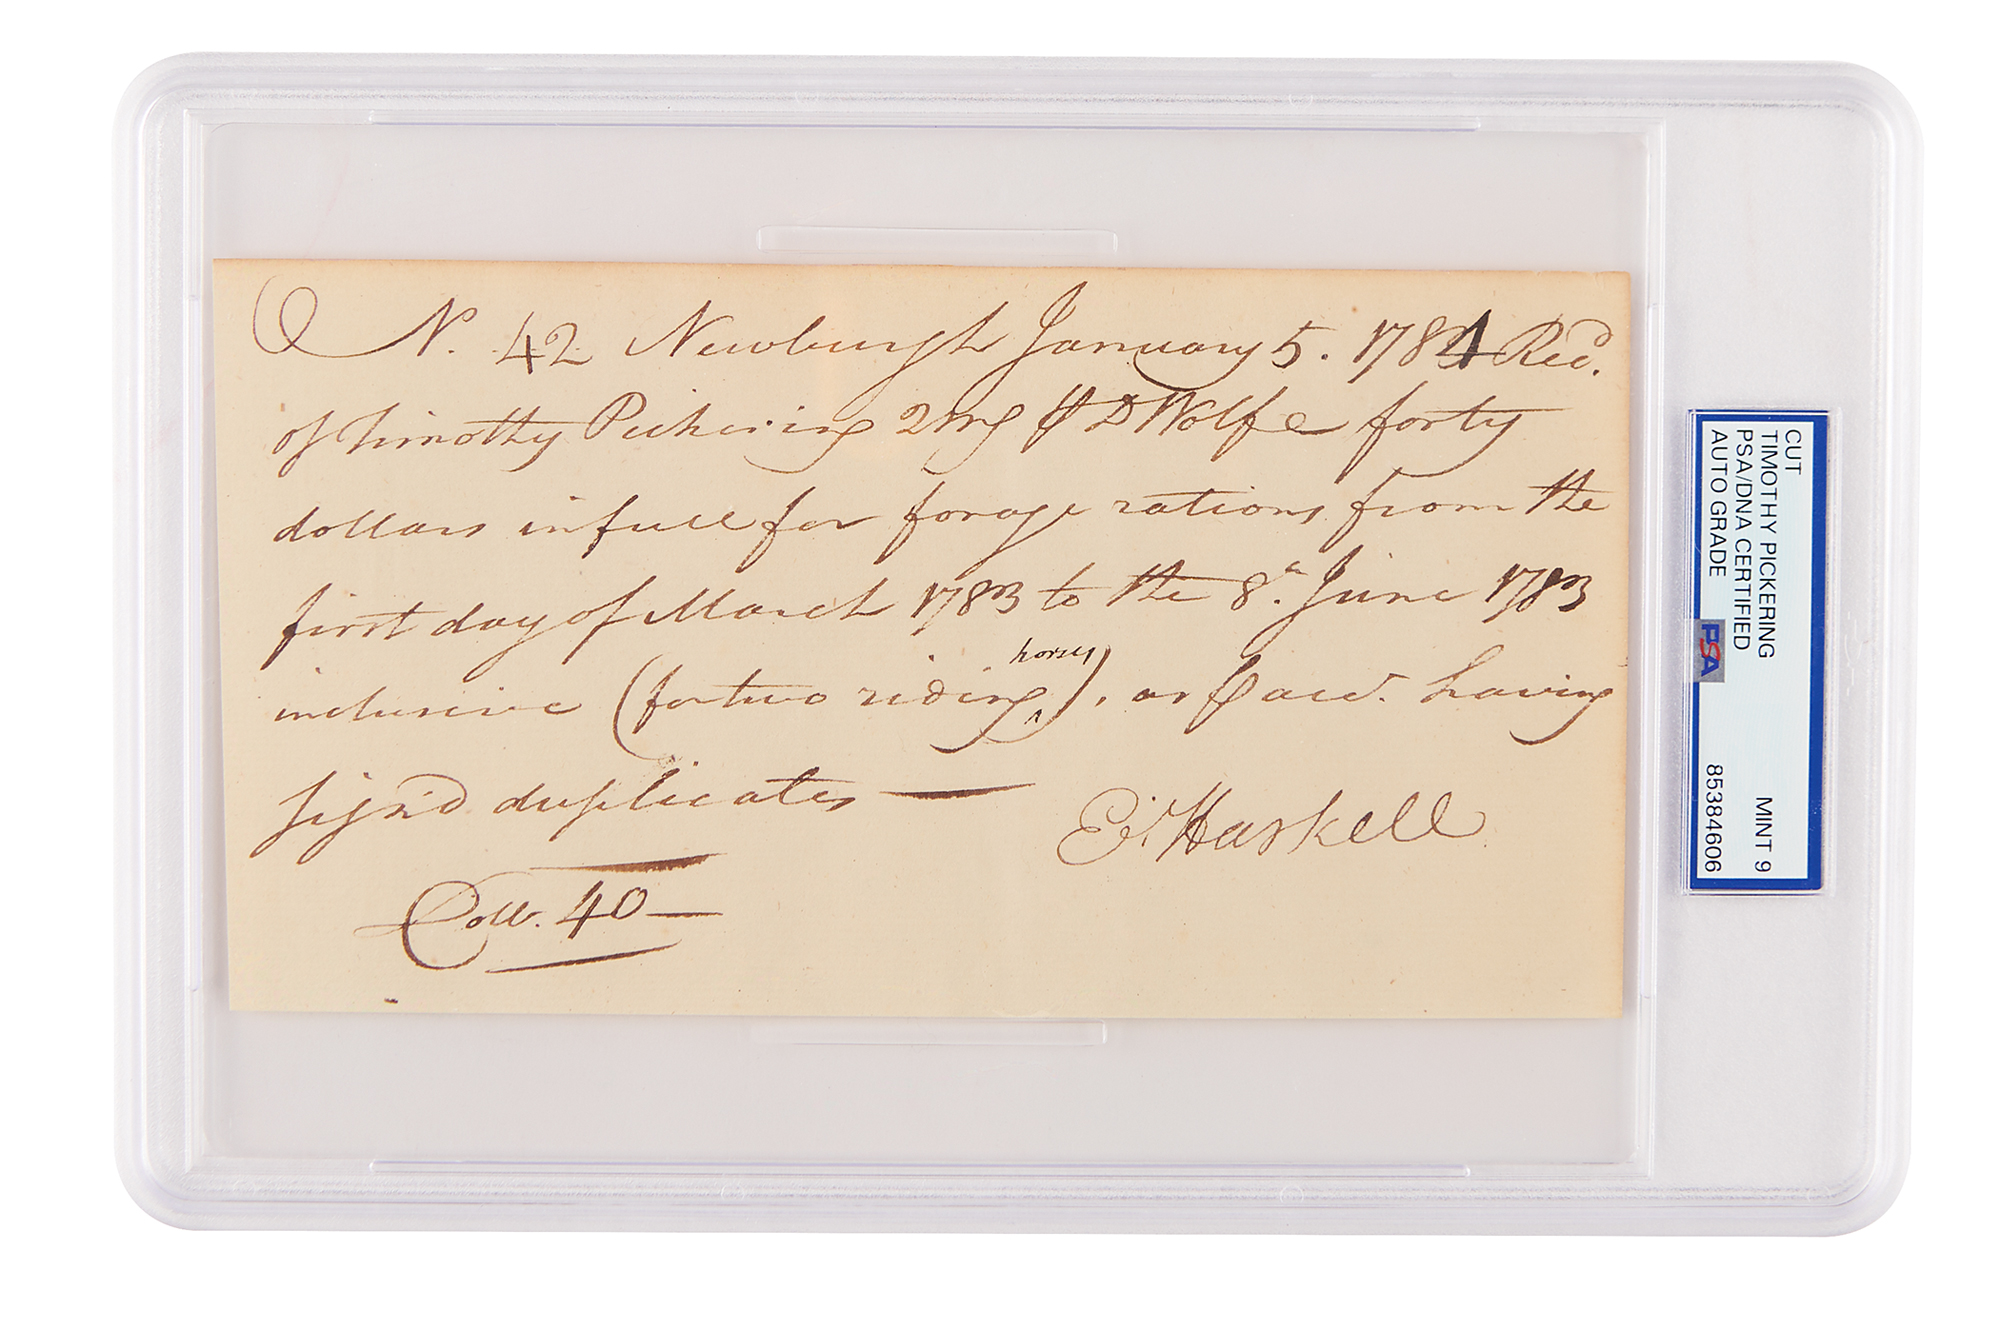 N°. 42 Newburgh January 5. 1784 Recd.
of Timothy Pickering QMG P D Wolfe forty
dollars in full for forage rations from the
first day of March 1783 to the 8th. June 1783
inclusive (for two riding ^horses), as p acct. having
sign'd duplicates —
E. Haskell
Doll. 40 —
CUT
TIMOTHY PICKERING
PSA/DNA CERTIFIED
AUTO GRADE
MINT 9
PSA
85384606